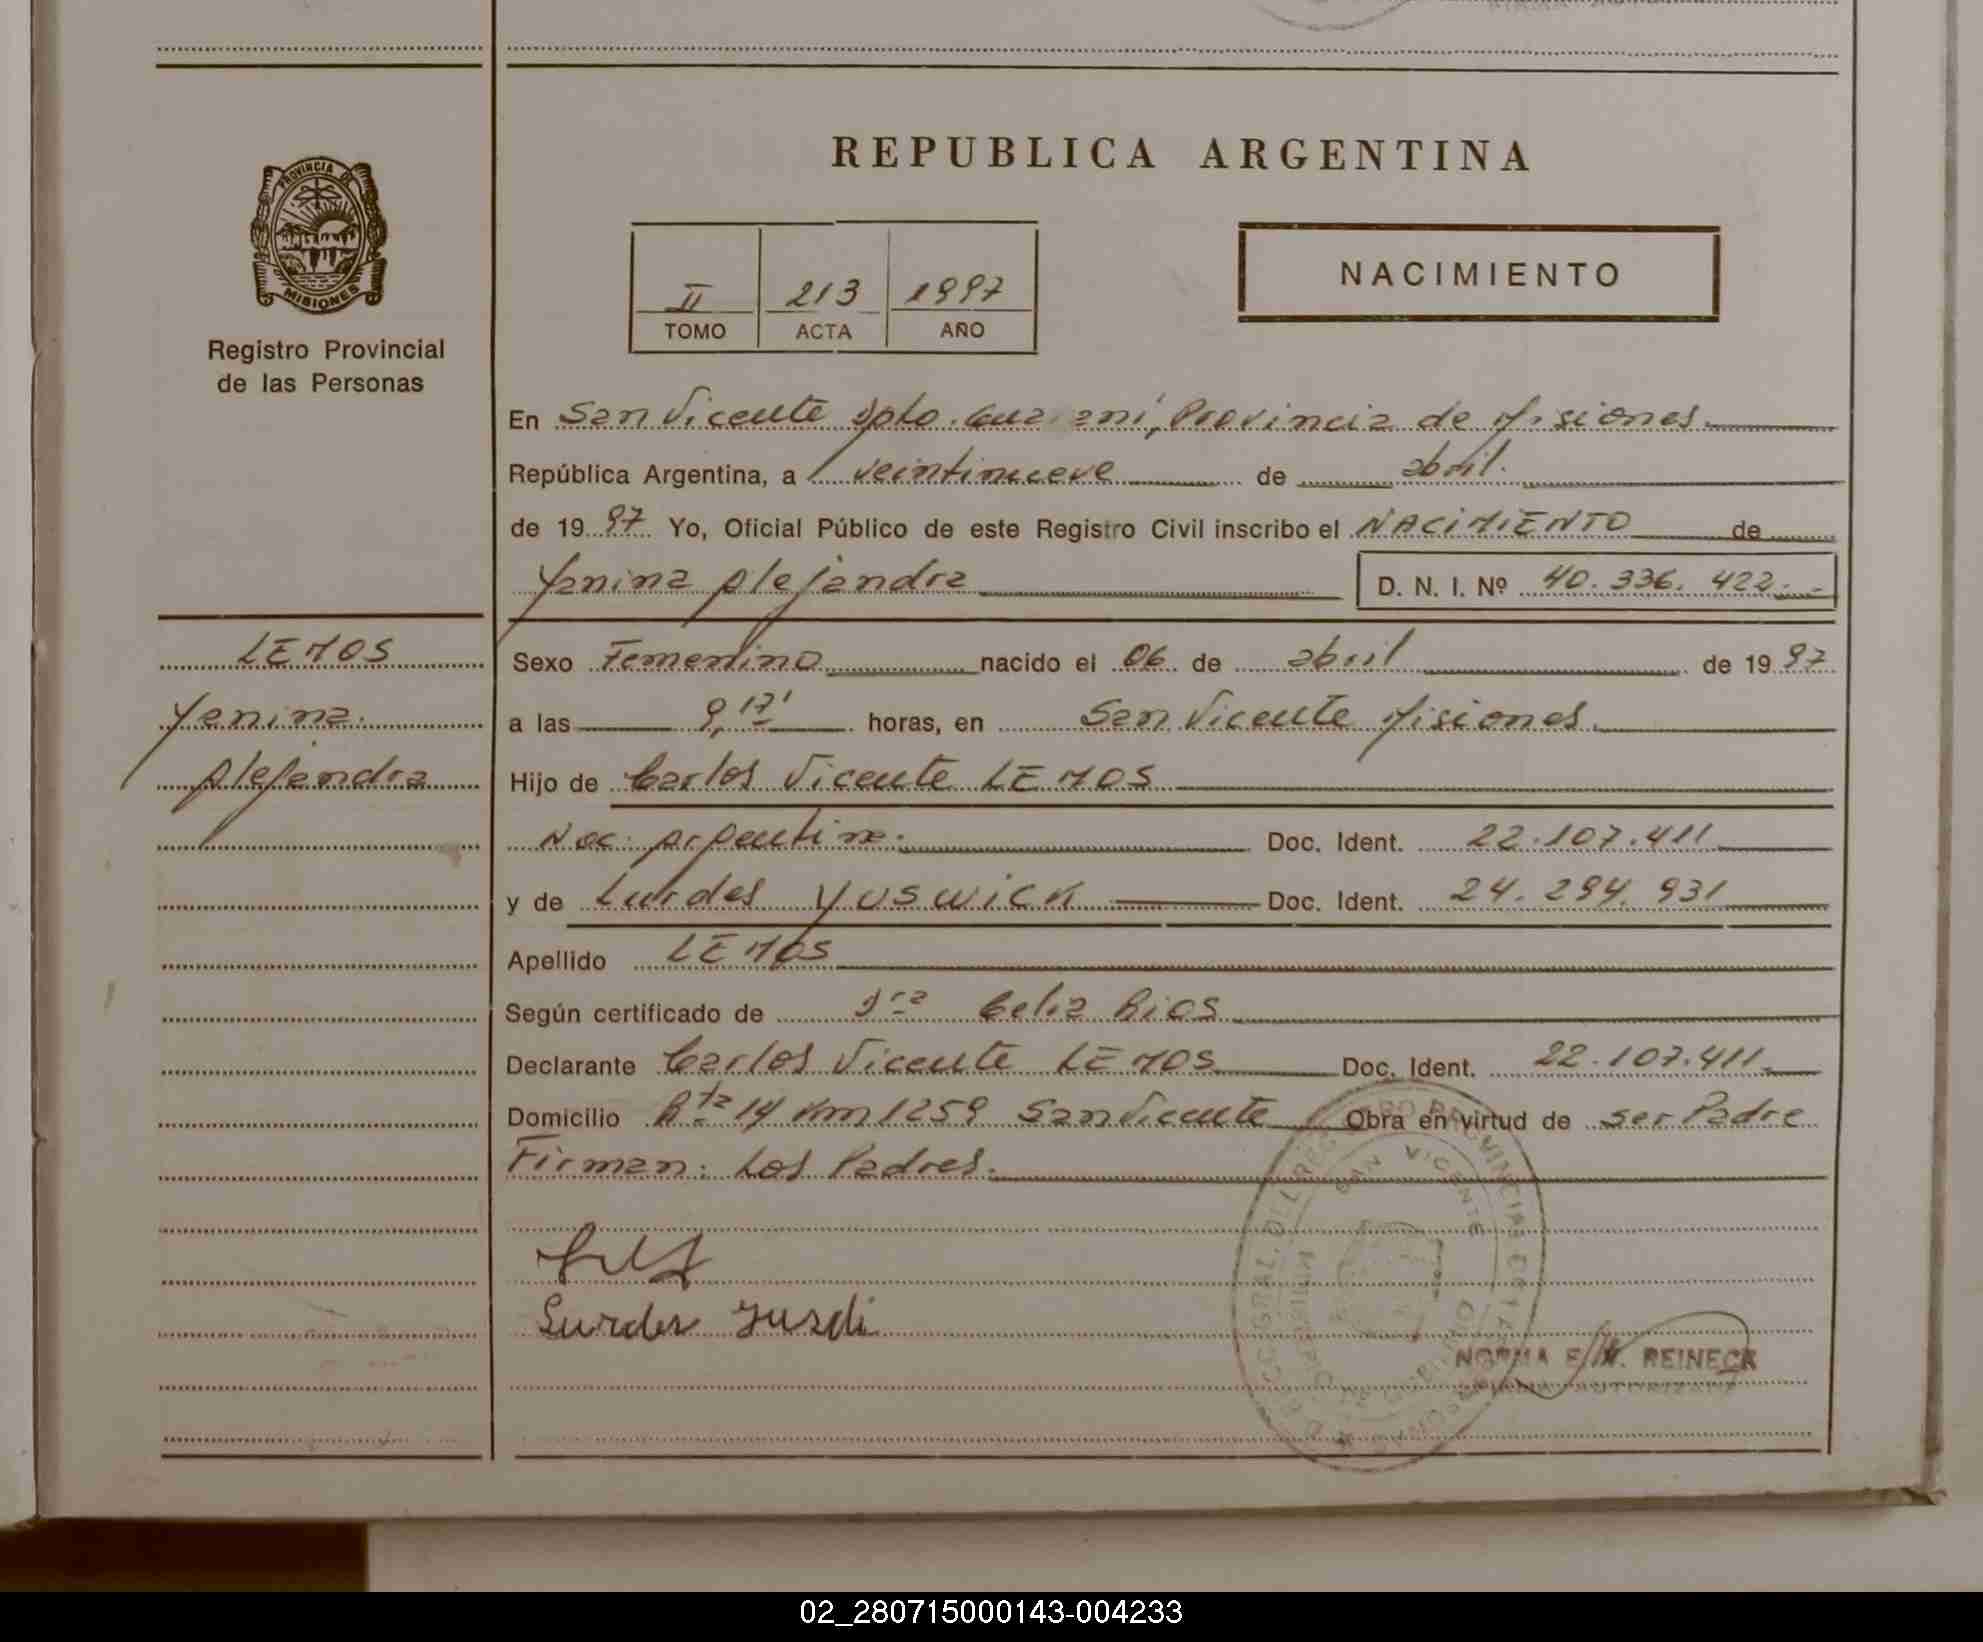 REPUBLICA ARGENTINA
PROVINCIA DE
MISIONES
Registro Provincial
de las Personas
II 213 1997
TOMO ACTA AÑO
NACIMIENTO
En San Vicente Dpto. Guaraní, Provincia de Misiones.
República Argentina, a veintinueve de abril.
de 1997 Yo, Oficial Público de este Registro Civil inscribo el NACIMIENTO de
Yanina Alejandra D. N. I. Nº 40.336.422.-
LEMOS
Yanina
Alejandra
Sexo Femenino nacido el 06 de abril de 1997
a las 9,17' horas, en San Vicente Misiones.
Hijo de Carlos Vicente LEMOS
Nac. Argentina. Doc. Ident. 22.107.411
y de Lurdes YUSWICK Doc. Ident. 24.294.931
Apellido LEMOS
Según certificado de Dra Celia Rios
Declarante Carlos Vicente LEMOS Doc. Ident. 22.107.411
Domicilio Rta 14 Km 1259 San Vicente Obra en virtud de ser Padre
Firman: Los Padres.
SAN VICENTE
Lurdes
NORMA E. REINECK
02_280715000143-004233